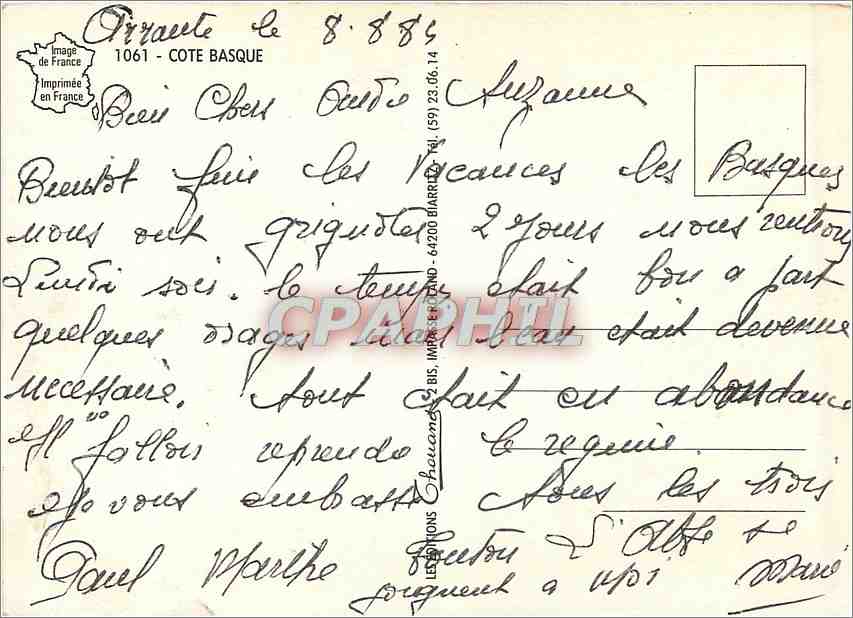 le 8.8.85
Image
de France
Imprimée
en France
1061 - COTE BASQUE
Bien Chers André Suzanne
Bientôt fini les Vacances les Basques
nous ont grignotés 2 jours nous rentrons
Lundi soir. le temps était bon a part
quelques orages mais l'eau était devenue
necessaire. tout était en abondance
falloir reprendre le regime.
vous embrasse tous les trois
Paul Marthe Tonton L'Abbé se
joignent a moi
LES EDITIONS Chouand 2 BIS, IMPASSE ROLAND - 64200 BIARRITZ - Tél. (59) 23.06.14
CPAPHIL